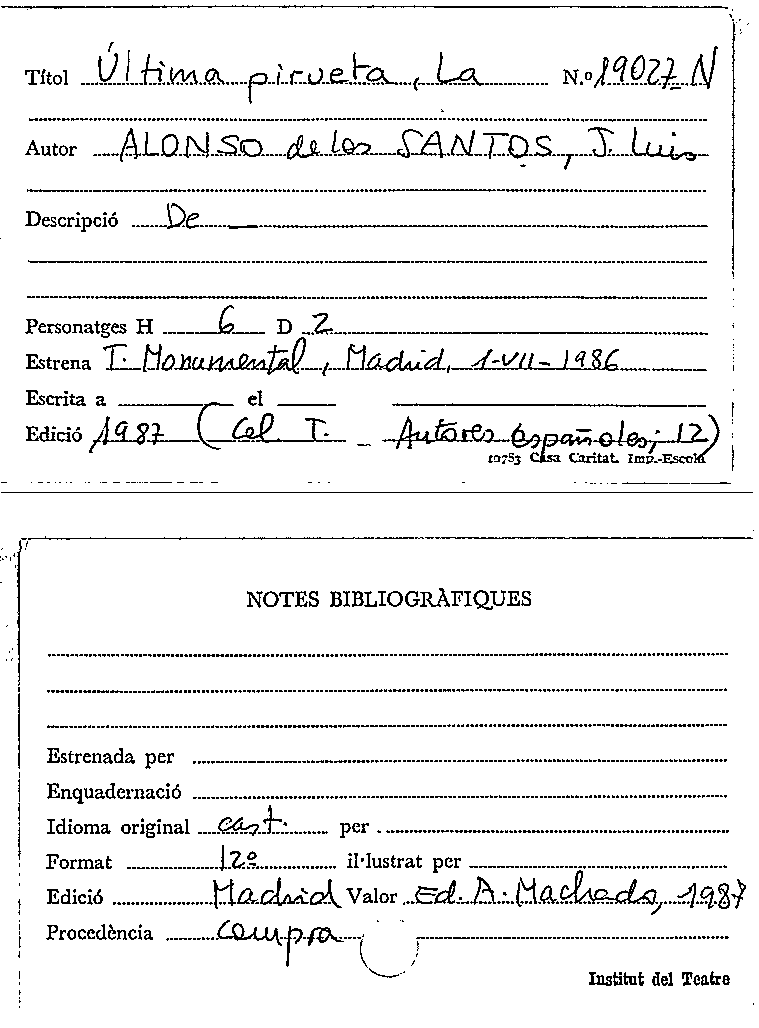 Títol Última pirueta, La N.º 19027-N
Autor ALONSO de los SANTOS, J. Luis
Descripció De —
Personatges H 6 D 2
Estrena T. Monumental, Madrid, 1-VII-1986
Escrita a el
Edició 1987 (Col. T. - Autores españoles; 12)
10753 Casa Caritat. Imp.-Escola
NOTES BIBLIOGRÀFIQUES
Estrenada per
Enquadernació
Idioma original cast. per
Format 12º il·lustrat per
Edició Madrid Valor Ed. A. Machado, 1987
Procedència compra
Institut del Teatre